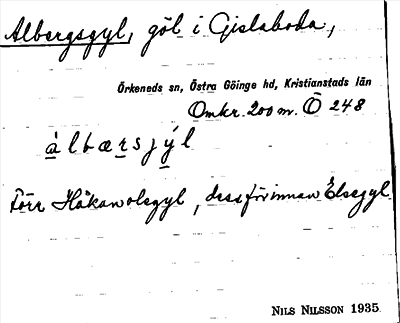 Albergsgyl, göl i Gislaboda,
Örkeneds sn, Östra Göinge hd, Kristianstads län
Omkr. 200 m. Ö 248
àlbærsjýl
Förr Håkanolsgyl, dessförinnan Elsegyl
NILS NILSSON 1935